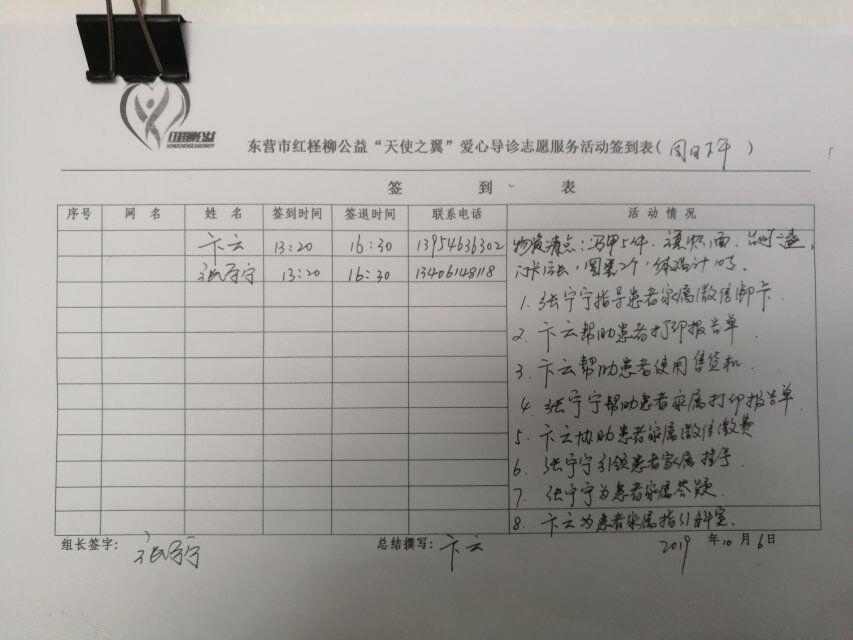 红柽柳公益
HONGCHENGLIUGONGYI
东营市红柽柳公益“天使之翼”爱心导诊志愿服务活动签到表(周日下午)
签 到 表
序号 网 名 姓 名 签到时间 签退时间 联系电话 活 动 情 况
卞云 13:20 16:30 13954636302 物资清点：马甲5件
张宁宁 13:20 16:30 13406148118
1. 张宁宁指导患者家属微信办卡
2. 卞云帮助患者打印报告单.
3. 卞云帮助患者使用售货机.
4. 张宁宁帮助患者家属打印报告单.
5. 卞云协助患者家属微信缴费
6. 张宁宁引领患者家属挂号.
7. 张宁宁为患者家属答疑.
8. 卞云为患者家属指引科室.
组长签字: 张宁宁 总结撰写: 卞云 2019 年 10 月 6 日